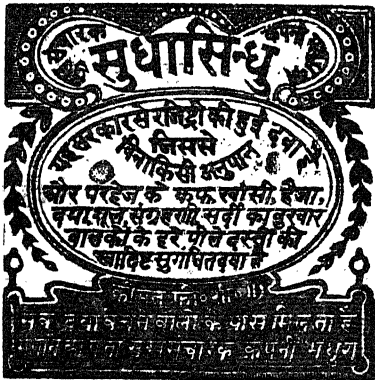 सुधासिन्धु
यह सरकार से रजिष्ट्री की हुई दवा है
जिससे
बिना किसी अनुपान
और परहेज के कफ, खांसी, हैजा,
दमा, शूल, संग्रहणी, सर्दी का बुखार
बालकों के हरे पीले दस्तों की
स्वादिष्ट सुगंधित दवा है
सब दवा बेचने वालों के पास मिलता है
कंपनी मथुरा